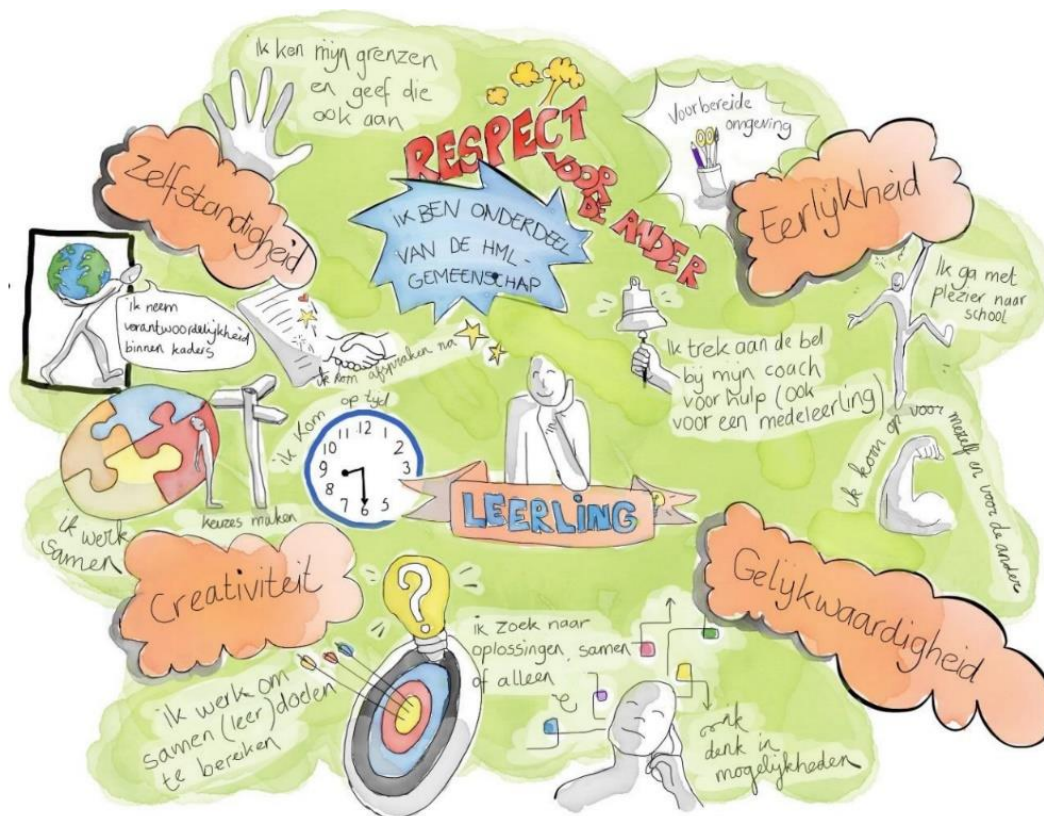 Ik ken mijn grenzen
en geef die
ook aan
RESPECT
VOOR
DE ANDER
Voorbereide
omgeving
Zelfstandigheid
IK BEN ONDERDEEL
VAN DE HML-
GEMEENSCHAP
Eerlijkheid
ik neem
verantwoordelijkheid
binnen kaders
ik kom afspraken na
Ik ga met
plezier naar
school
Ik trek aan de bel
bij mijn coach
voor hulp (ook
voor een medeleerling)
ik kom op tijd
12
11
1
10
2
9
3
8
7
6
5
ik kom op voor mezelf en voor de ander
ik werk
samen
keuzes maken
LEERLING
Creativiteit
Gelijkwaardigheid
?
ik zoek naar
oplossingen, samen
of alleen
ik werk om
samen (leer)doelen
te bereiken
denk in
mogelijkheden